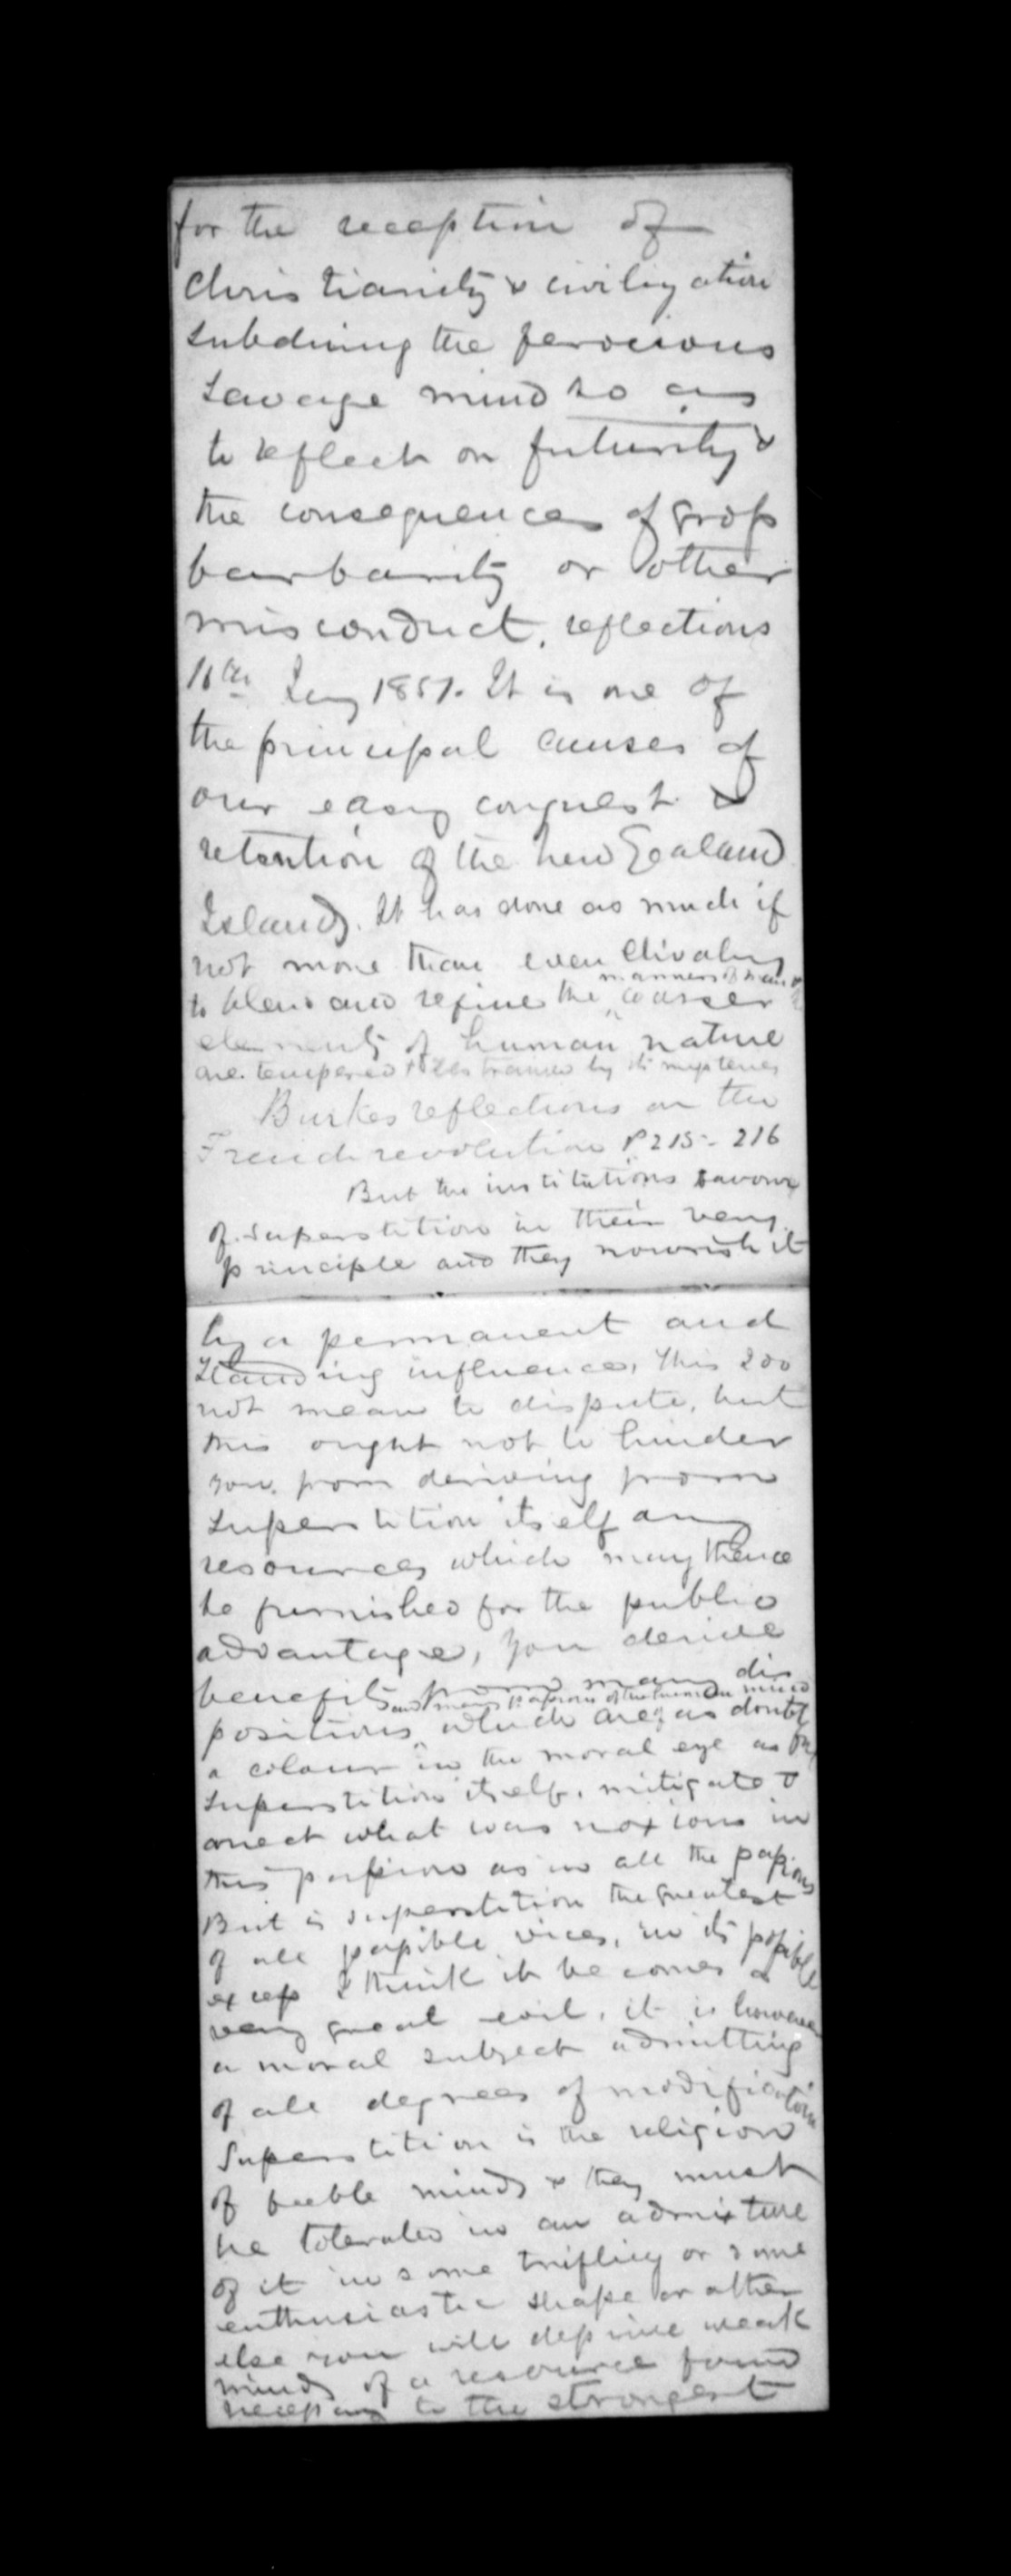 for the reception of
Christianity & civilization
subduing the ferocious
savage mind so as
to reflect on futurity &
the consequences of gross
barbarity or other
misconduct. reflections
16th 1851. It is one of
the principal causes of
our easy conquest &
retention of the New Zealand
Islands. It has done as much if
not more than even Chivalry
manners of man &
to blend and refine the coarser
elements of human nature
are tempered & by its mysteries
Burkes reflections on the
French revolution P 215 - 216
But the institutions savour
of superstition in their very
principle and they nourish it
by a permanent and
standing influence, This I do
not mean to dispute, but
this ought not to hinder
you from deriving from
superstition itself any
resources which may thence
be furnished for the public
advantage, You derive
benefits from many dis
and many passions of the human mind
positions which are of as doubtful
a colour in the moral eye as
superstition itself. mitigate &
correct what was noxious in
this passion as in all the passions
But is superstition the greatest
of all possible vices, in its possible
excess I think it becomes a
very great evil, it is however
a moral subject admitting
of all degrees of modification
Superstition is the religion
of feeble minds & they must
be tolerated in an admixture
of it in some trifling or some
enthusiastic shape or other
else you will deprive weak
minds of a resource found
necessary to the strongest